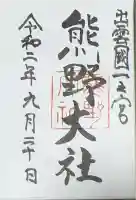 出雲國一之宮
熊野大社
令和二年九月二十日